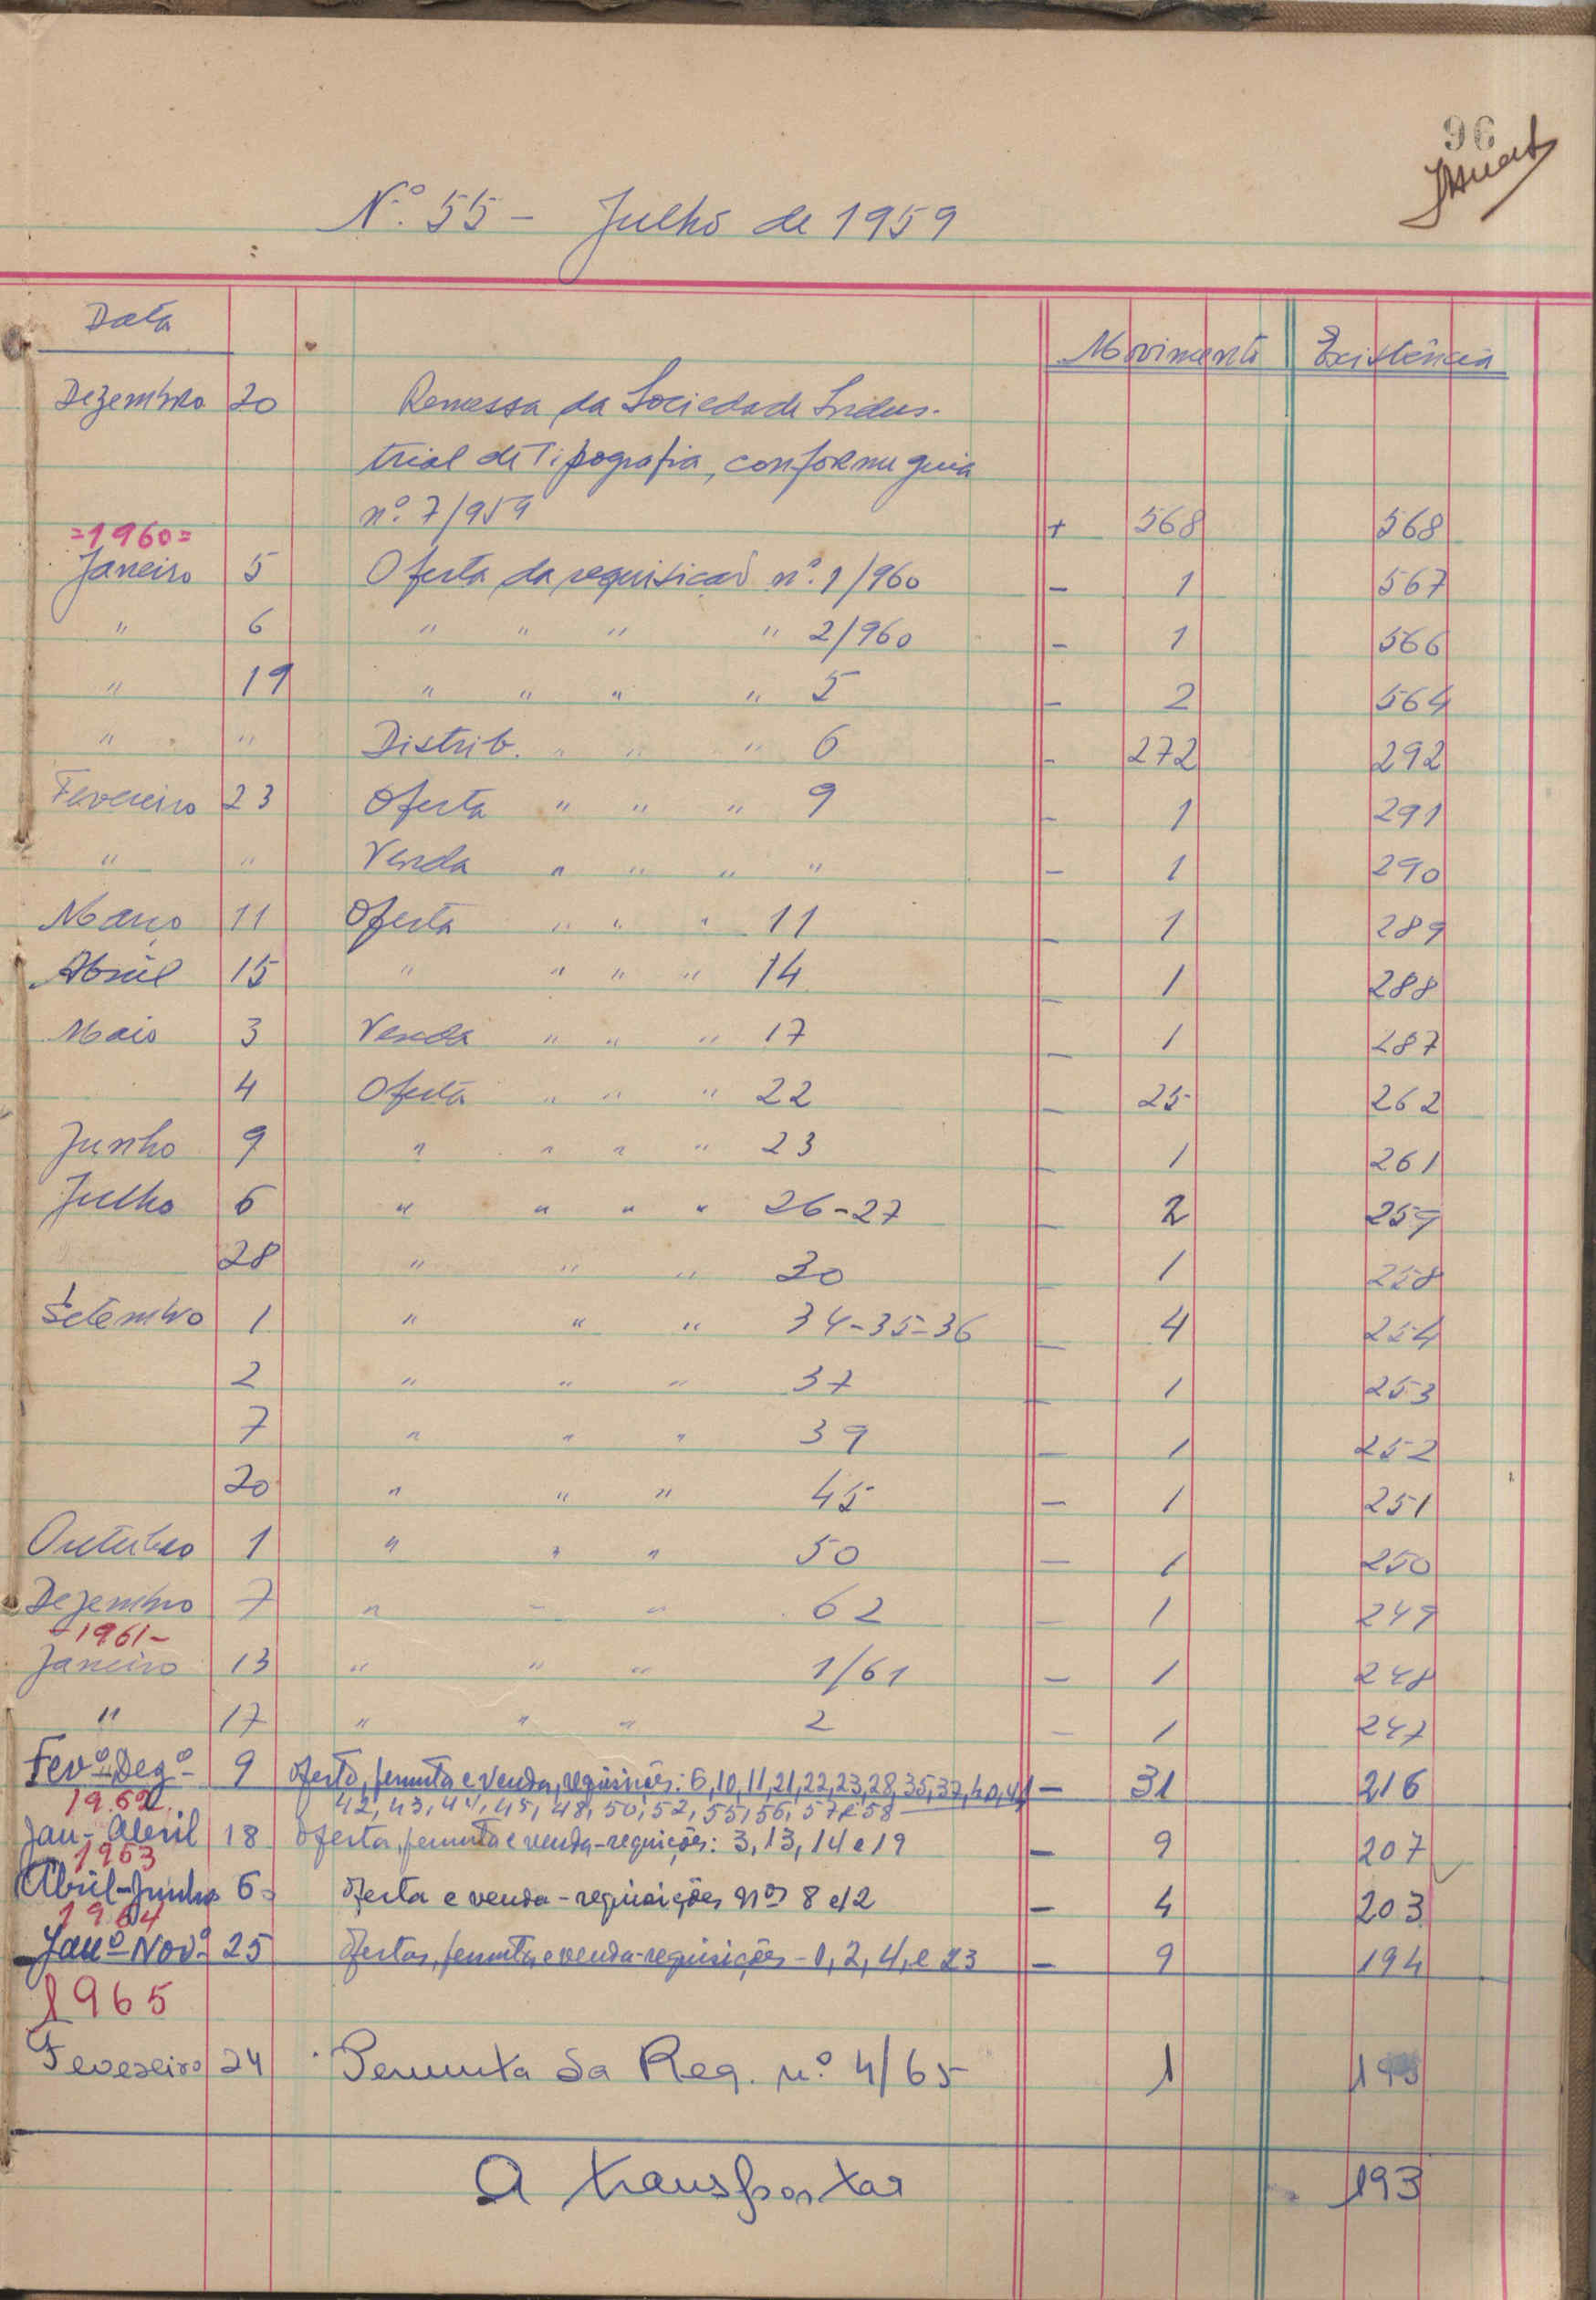 96
Nº. 55 - Julho de 1959
Data Movimento Existência
Dezembro 20 Remessa da Sociedade Indus-
trial de Tipografia, conforme guia
nº. 7/959 + 568 568
=1960=
Janeiro 5 Oferta da requisicaõ nº. 1/960 - 1 567
" 6 " " " " 2/960 - 1 566
" 19 " " " " 5 - 2 564
" " Distrib. " " " 6 - 272 292
Fevereiro 23 Oferta " " " 9 - 1 291
" " Venda " " " " - 1 290
Março 11 Oferta " " " 11 - 1 289
Abril 15 " " " " 14 - 1 288
Maio 3 Venda " " " 17 - 1 287
4 Oferta " " " 22 - 25 262
Junho 9 " " " " 23 - 1 261
Julho 6 " " " " 26-27 - 2 259
28 " " " 30 - 1 258
Setembro 1 " " " 34-35-36 - 4 254
2 " " " 37 - 1 253
7 " " " 39 - 1 252
20 " " " 45 - 1 251
Outubro 1 " " " 50 - 1 250
Dezembro 7 " " " 62 - 1 249
-1961-
Janeiro 13 " " " 1/61 - 1 248
" 17 " " " 2 - 1 247
Fevº-Dezº- 9 oferta, permuta e venda, requisições: 6,10,11,21,22,23,28,35,37,40,41 - 31 216
42, 43, 44, 45, 48, 50, 52, 55, 56, 57 e 58
1962
Jan-Abril 18 oferta, permuta e venda-requições: 3, 13, 14 e 19 - 9 207
1963
Abril-Junho 6 oferta e venda - requisições nºs 8 e 12 - 4 203
1964
Janº-Novº 25 ofertas, permuta, e venda-requisições - 1, 2, 4, e 23 - 9 194
1965
Fevereiro 24 Permuta da Req. nº 4/65 1 193
A transportar 193